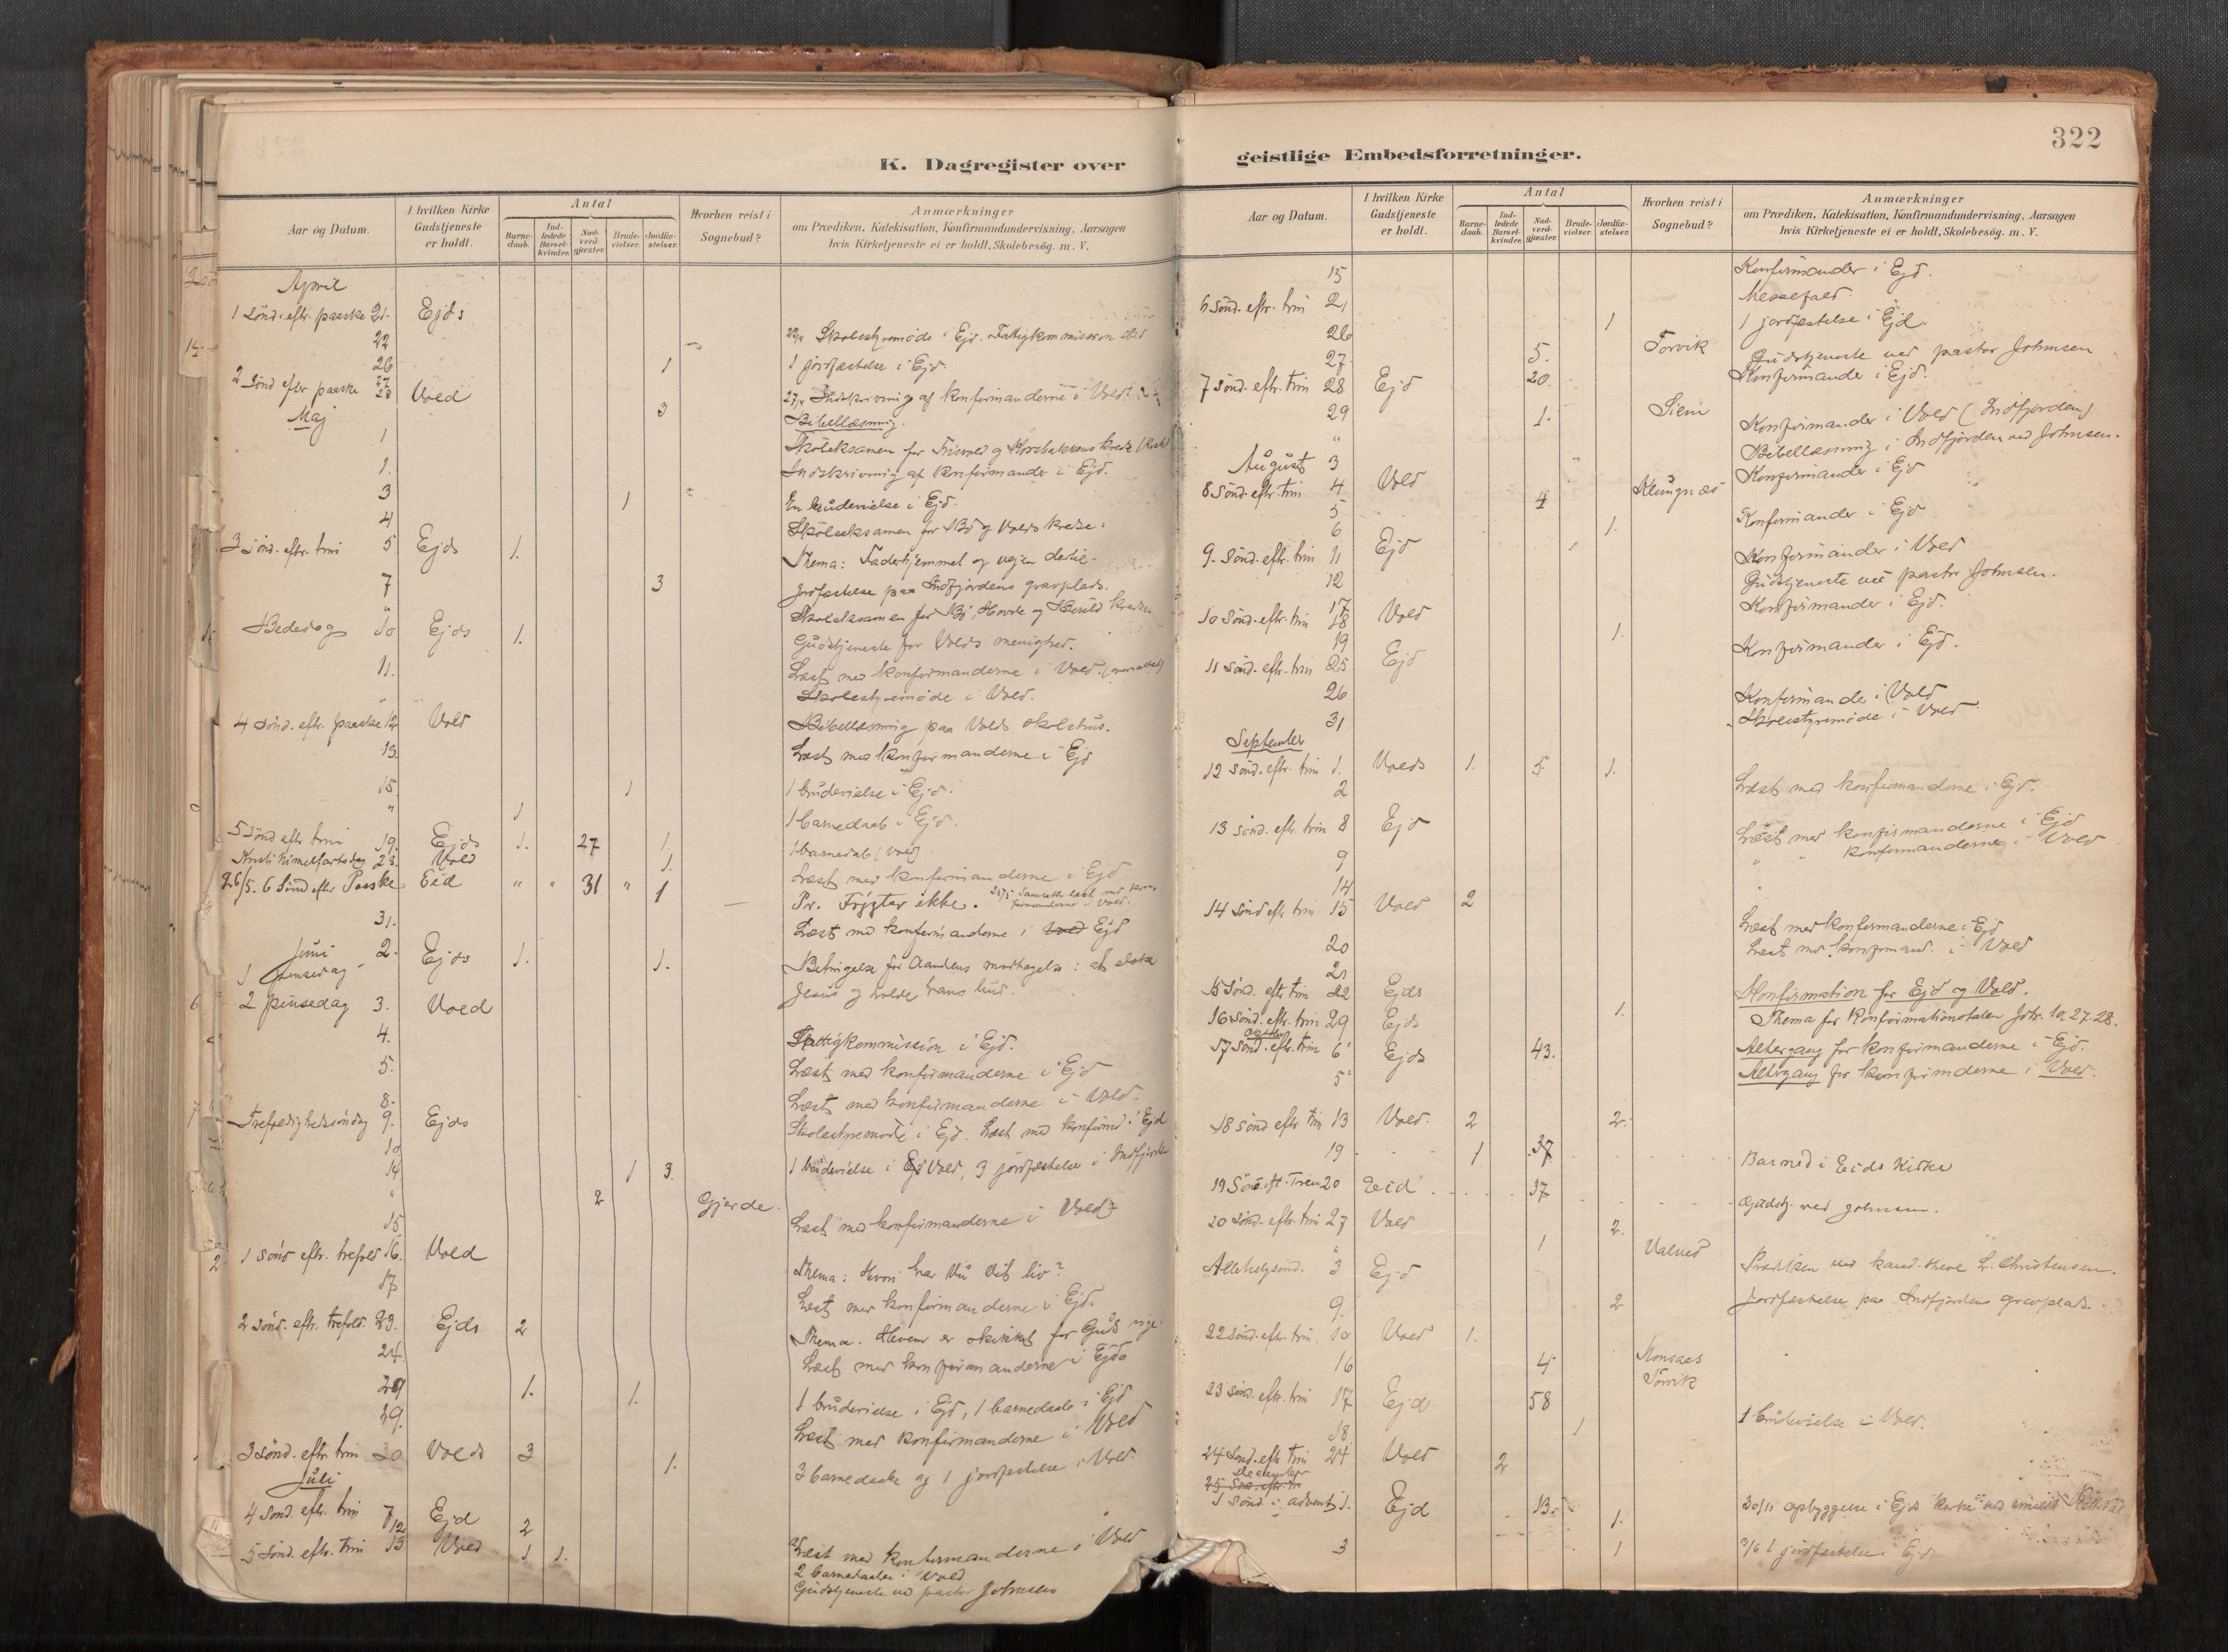 K. Dagregister over
Aar og Datum.
I hvilken Kirke Gudstjeneste er holdt.
Antal
Barne-daab.
Ind-ledede Barsel-kvinder.
Nad-verd-gjæster.
Brude-vielser.
Jordfæ-stelser.
Hvorhen reist i Sognebud?
Anmærkninger
om Prædiken, Katekisation, Konfirmandundervisning, Aarsagen
hvis Kirketjeneste ei er holdt, Skolebesög. m. V.
April
1 Sönd. eftr. paaske 21. Ejds
22 22/4 Skolestyremöde i Ejd. Fattigkommission
26 1 1 jordfæstelse i Ejd.
2 Sönd eftr paaske 27 28 Vold 3 27/4 Indskrivning af konfirmanderne i Vold
Maj Bibellæsning.
1 Skoleksamen for
1. Indskrivning af konfirmander i Ejd.
3 1 En brudevielse i Ejd.
4 Skoleeksamen for Bö og Volds kredse.
3 Sönd. eftr. trin 5 Ejds 1. Thema: Faderhjemmet og vejen dertil.
7 3 Jordfæstelse paa Indfjordens gravplads.
Bededag 10 Ejds 1. Gudstjeneste for Volds menighed.
11. Læst med konfirmanderne i Vold.
" Skolestyremöde i Vold.
4 Sönd. eftr. paaske 12 Vold Bibellæsning paa Volds skolehus.
13. Læst med konfirmanderne i Ejd
15. 1 1 brudevielse i Ejd.
" 1 1 barnedaab i Ejd.
5 Sönd eftr trin 19. Ejds 1. 27 1 1 barnedaab i Vold
Kristi himelfartsdag 23. Vold 1. Læst med konfirmanderne i Ejd
26/5. 6 Sönd efter Paaske Eid " " 31 " 1 — Pr. Frygter ikke.
31. Læst med konfirmanderne i Vold Ejd
Juni
1 pinsedag 2. Ejds 1. 1. Betingelse for Aandens modtagelse: at elske
Jesus og holde hans bud.
2 pinsedag 3. Vold
4. Fattigkommission i Ejd.
5. Læst med konfirmanderne i Ejd
8. Læst med konfirmanderne i Vold.
Trefoldighedssöndag 9. Ejds
10 Skolestyremöde i Ejd. Læst med konfirmd. i Ejd
14 1 3. 1 brudevielse i Ejd Vold, 3 jordfæstelse i Indfjorden
" 2 Gjerde.
15. Læst med konfirmanderne i Vold
1 sönd eftr. trefold 16. Vold Thema: Hvori har du dit liv?
17 Læst med konfirmanderne i Ejd.
2 sönd. eftr. trefold. 23. Ejds 2 Thema. Hvem er skikket for Guds rige.
24. Læst med konfirmanderne i Ejds
29 1. 1. 1 brudevielse i Ejd, 1 barnedaab i Ejd
29. Læst med konfirmanderne i Vold
3 sönd. eftr trin 30 Volds 3 1. 3 barnedaabe og 1 jordfæstelse i Vold.
Juli
4 Sönd. eftr. trin 7 Ejd
12 2 Læst med konfirmanderne i Vold
5 Sönd. eftr. trin 13 Vold 1 1. 2 barnedaabe i Vold
Gudstjeneste ved pastor Johnsen
322
geistlige Embedsforretninger.
Aar og Datum.
I hvilken Kirke Gudstjeneste er holdt.
Antal
Barne-daab.
Ind-ledede Barsel-kvinder.
Nad-verd-gjæster.
Brude-vielser.
Jordfæ-stelser.
Hvorhen reist i Sognebud?
Anmærkninger
om Prædiken, Katekisation, Konfirmandundervisning, Aarsagen
hvis Kirketjeneste ei er holdt, Skolebesög. m. V.
15 Konfirmander i Ejd.
6 Sönd. eftr. trin 21 Messefald.
26 1 1 jordfæstelse i Ejd.
27 5. Torvik
7 Sönd. eftr. trin 28 Ejd 20. Gudstjeneste ved pastor Johnsen
29 1. Konfirmander i Ejd.
" Konfirmander i Vold (Indfjorden)
August 3 Bibellæsning i Indfjorden ved Johnsen.
8 Sönd. eftr. trin 4 Vold 4 Klungnæs Konfirmander i Ejd
5
6 1. Konfirmander i Ejd
9. Sönd. eftr. trin 11 Ejd Konfirmander i Vold
12 Gudstjeneste ved pastor Johnsen.
17 Konfirmander i Ejd.
10 Sönd. eftr. trin 18 Vold
19 1. Konfirmander i Ejd.
11 Sönd. eftr. trin 25 Ejd
26 Konfirmander i Vold
31 Skolestyremöde i Vold
September
12 Sönd. eftr. trin 1. Volds 1. 5. 1.
2 Læst med konfirmanderne i Ejd.
13 Sönd. eftr. trin 8 Ejd
9 Læst med konfirmanderne i Ejd
14 " " konfirmanderne i Vold
14 Sönd eftr trin 15 Vold 2
20 Læst med konfirmanderne i Ejd
21 Læst med konfirmand. i Vold
15 Sönd. eftr trin 22 Ejds Konfirmation for Ejd og Vold.
16 Sönd. eftr. trin 29 Ejds 1. Thema for konfirmationstalen Joh. 10,27-28.
17 Sönd. eftr. trin 6 Ejds 43. Altergang for konfirmanderne i Ejd.
5 Altergang for konfirmderne i Vold.
18 Sönd eftr trin 13 Vold 2 2.
19 1 37 Barned i Eids Kirke
19 Sönd eft. Tren 20 Eid 37 Gudstj. ved Johnsen.
20 Sönd. eftr. trin 27 Vold 2.
" 1
Allehelgsönd. 3 Ejd Prædiken ved kand. theol L. Christensen.
9. 2 Jordfæstelse paa Indfjordens gravplads.
22 Sönd. eftr. trin. 10 Vold 1.
16 4 Torvik
23 Sönd. eftr. trin 17 Ejd 58
18 1 1 brudevielse i Vold.
24 Sönd. eftr trin 24 Vold 2
December
1 Sönd i advent 1. Ejd 13. 1. 30/11 opbyggelse i Ejds kirke ved
3 1 jordfæstelse i Ejd